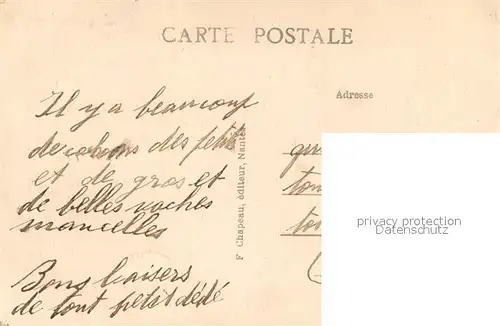 CARTE POSTALE
Adresse
Il y a beaucoup
de cochons des petits
et de gros et
de belles vaches
mancelles
Bons baisers
de tout petit dédé
F Chapeau, éditeur, Nantes
privacy protection
Datenschutz